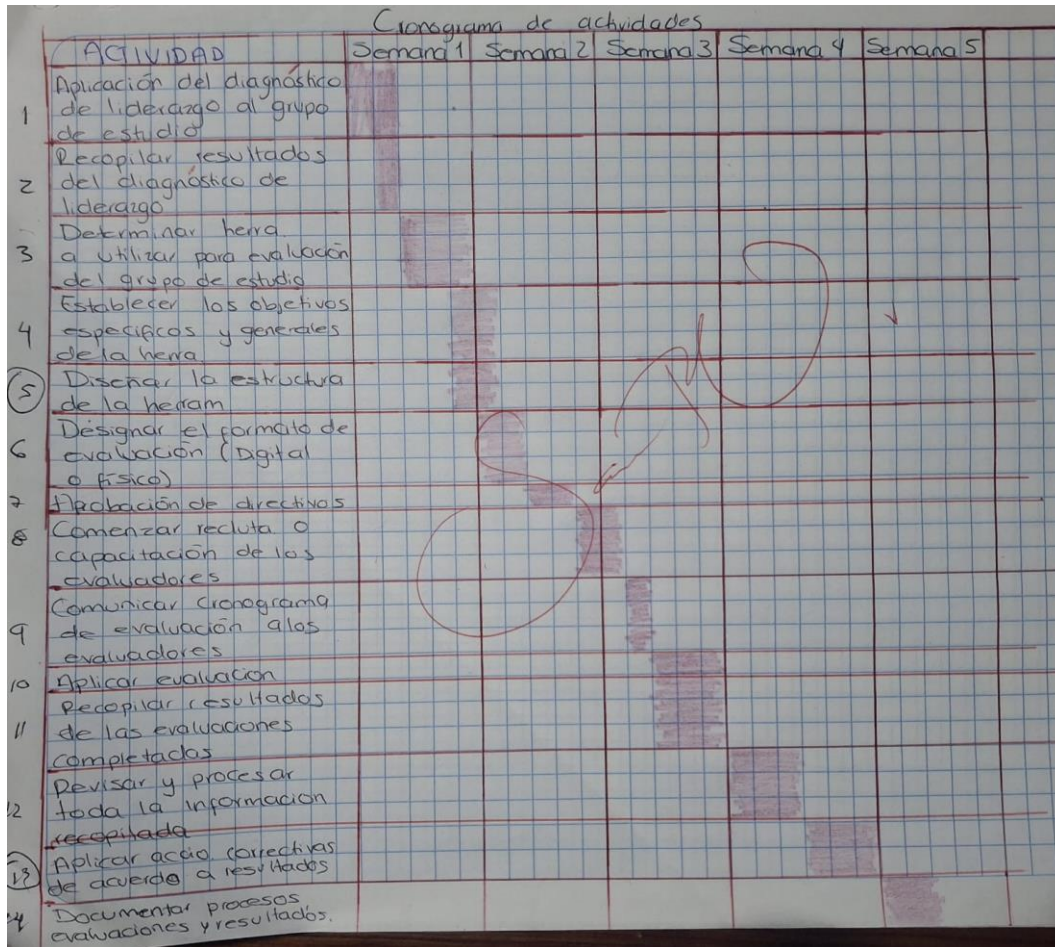 Cronograma de actividades
ACTIVIDAD Semana 1 Semana 2 Semana 3 Semana 4 Semana 5
Aplicación del diagnóstico
1 de liderazgo al grupo
de estudio
Recopilar resultados
2 del diagnóstico de
liderazgo
Determinar herra.
3 a utilizar para evaluación
del grupo de estudio
Establecer los objetivos
4 especificos y generales
de la herra.
5 Diseñar la estructura
de la herram
Designar el formato de
6 evaluación (Digital
o físico)
7 Aprobación de directivos
8 Comenzar recluta o
capacitación de los
evaluadores
Comunicar cronograma
9 de evaluación a los
evaluadores
10 Aplicar evaluación
Recopilar resultados
11 de las evaluaciones
completadas
Revisar y procesar
12 toda la informacion
recopilada
Aplicar accio. correctivas
13 de acuerdo a resultados
14 Documentar procesos
evaluaciones y resultados.